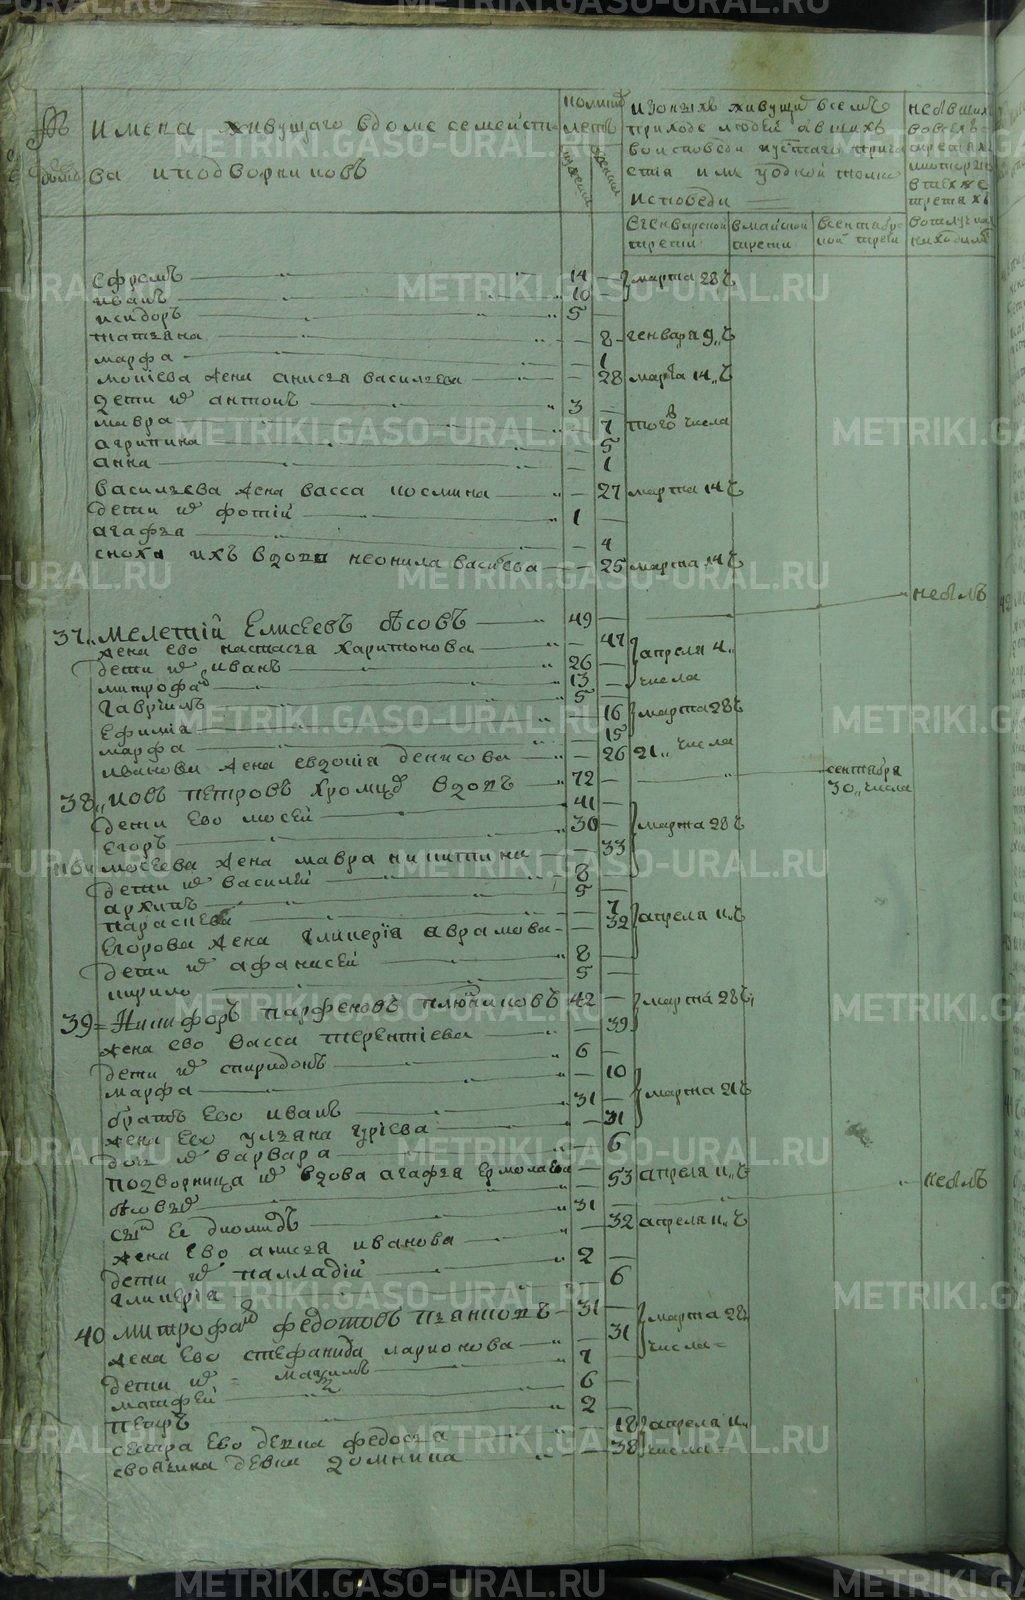 METRIKI.GASO-URAL.RU
№
имена живущаго вдоме семейст-
ва иподворниковъ
лета
мужеска
женска
изоныхъ живущи всемъ
приходе людей
исповеди
вгенварской
трети
вмайской
трети
всентябр-
ской трети
ефремъ 14 марта 28 ч
иванъ 10
исидоръ 5
татьяна 8 генваря 9,, ч
марфа 1
моисеева жена анисья васильева 28 марта 14,, ч
дети их антонъ 3
мавра 7 того числа
агрипина 5
анна 1
васильева жена васса козмина 27 марта 14 ч
дети их фотий 1
агафья 4
сноха ихъ вдова неонила васильева 25 марта 14 ч
небылъ
37,, мелетий Елисеевъ бѣсовъ 49
жена ево настасья харитонова 47 апреля 4,,
дети их иванъ 26 числа
митрофан 13
гаврилъ 5
Ефимия 16 марта 28 ч
марфа 15
иванова жена евдокия денисова 26 21,, числа
38,, иовъ петровъ хромцов вдовъ 72 сентября
30,, числа
дети Ево мосей 41
Егоръ 30 марта 28 ч
мосеева жена мавра никитина 33
дети их василей 8
архипъ 5
параскева 7
Егорова жена гликерия аврамова 32 апреля 11 ч
дети их афанасей 8
кирило 5
39 Никифоръ парфеновъ плюхиновъ 42 марта 28 ч
жена ево васса терентиева 39
дети их спиридонъ 6
марфа 10
братъ Ево иванъ 31 марта 21 ч
жена Ево ульяна гуриева 31
дочь их варвара 6
подворница их вдова агафья Ермолаева 53 апреля 11,, ч
небылъ
сын Ее диомидъ 31
жена Ево анисья иванова 32 апреля 11,, ч
дети их палладий 2
гликерия 6
40 митрофан федотовъ пьянковъ 31 марта 28
жена Ево стефанида ларионова 31 числа
дети их максимъ 7
матфей 6
петръ 2
сестра Ево девка федосья 18 апреля 11,,
своячина девка домника 38 числа